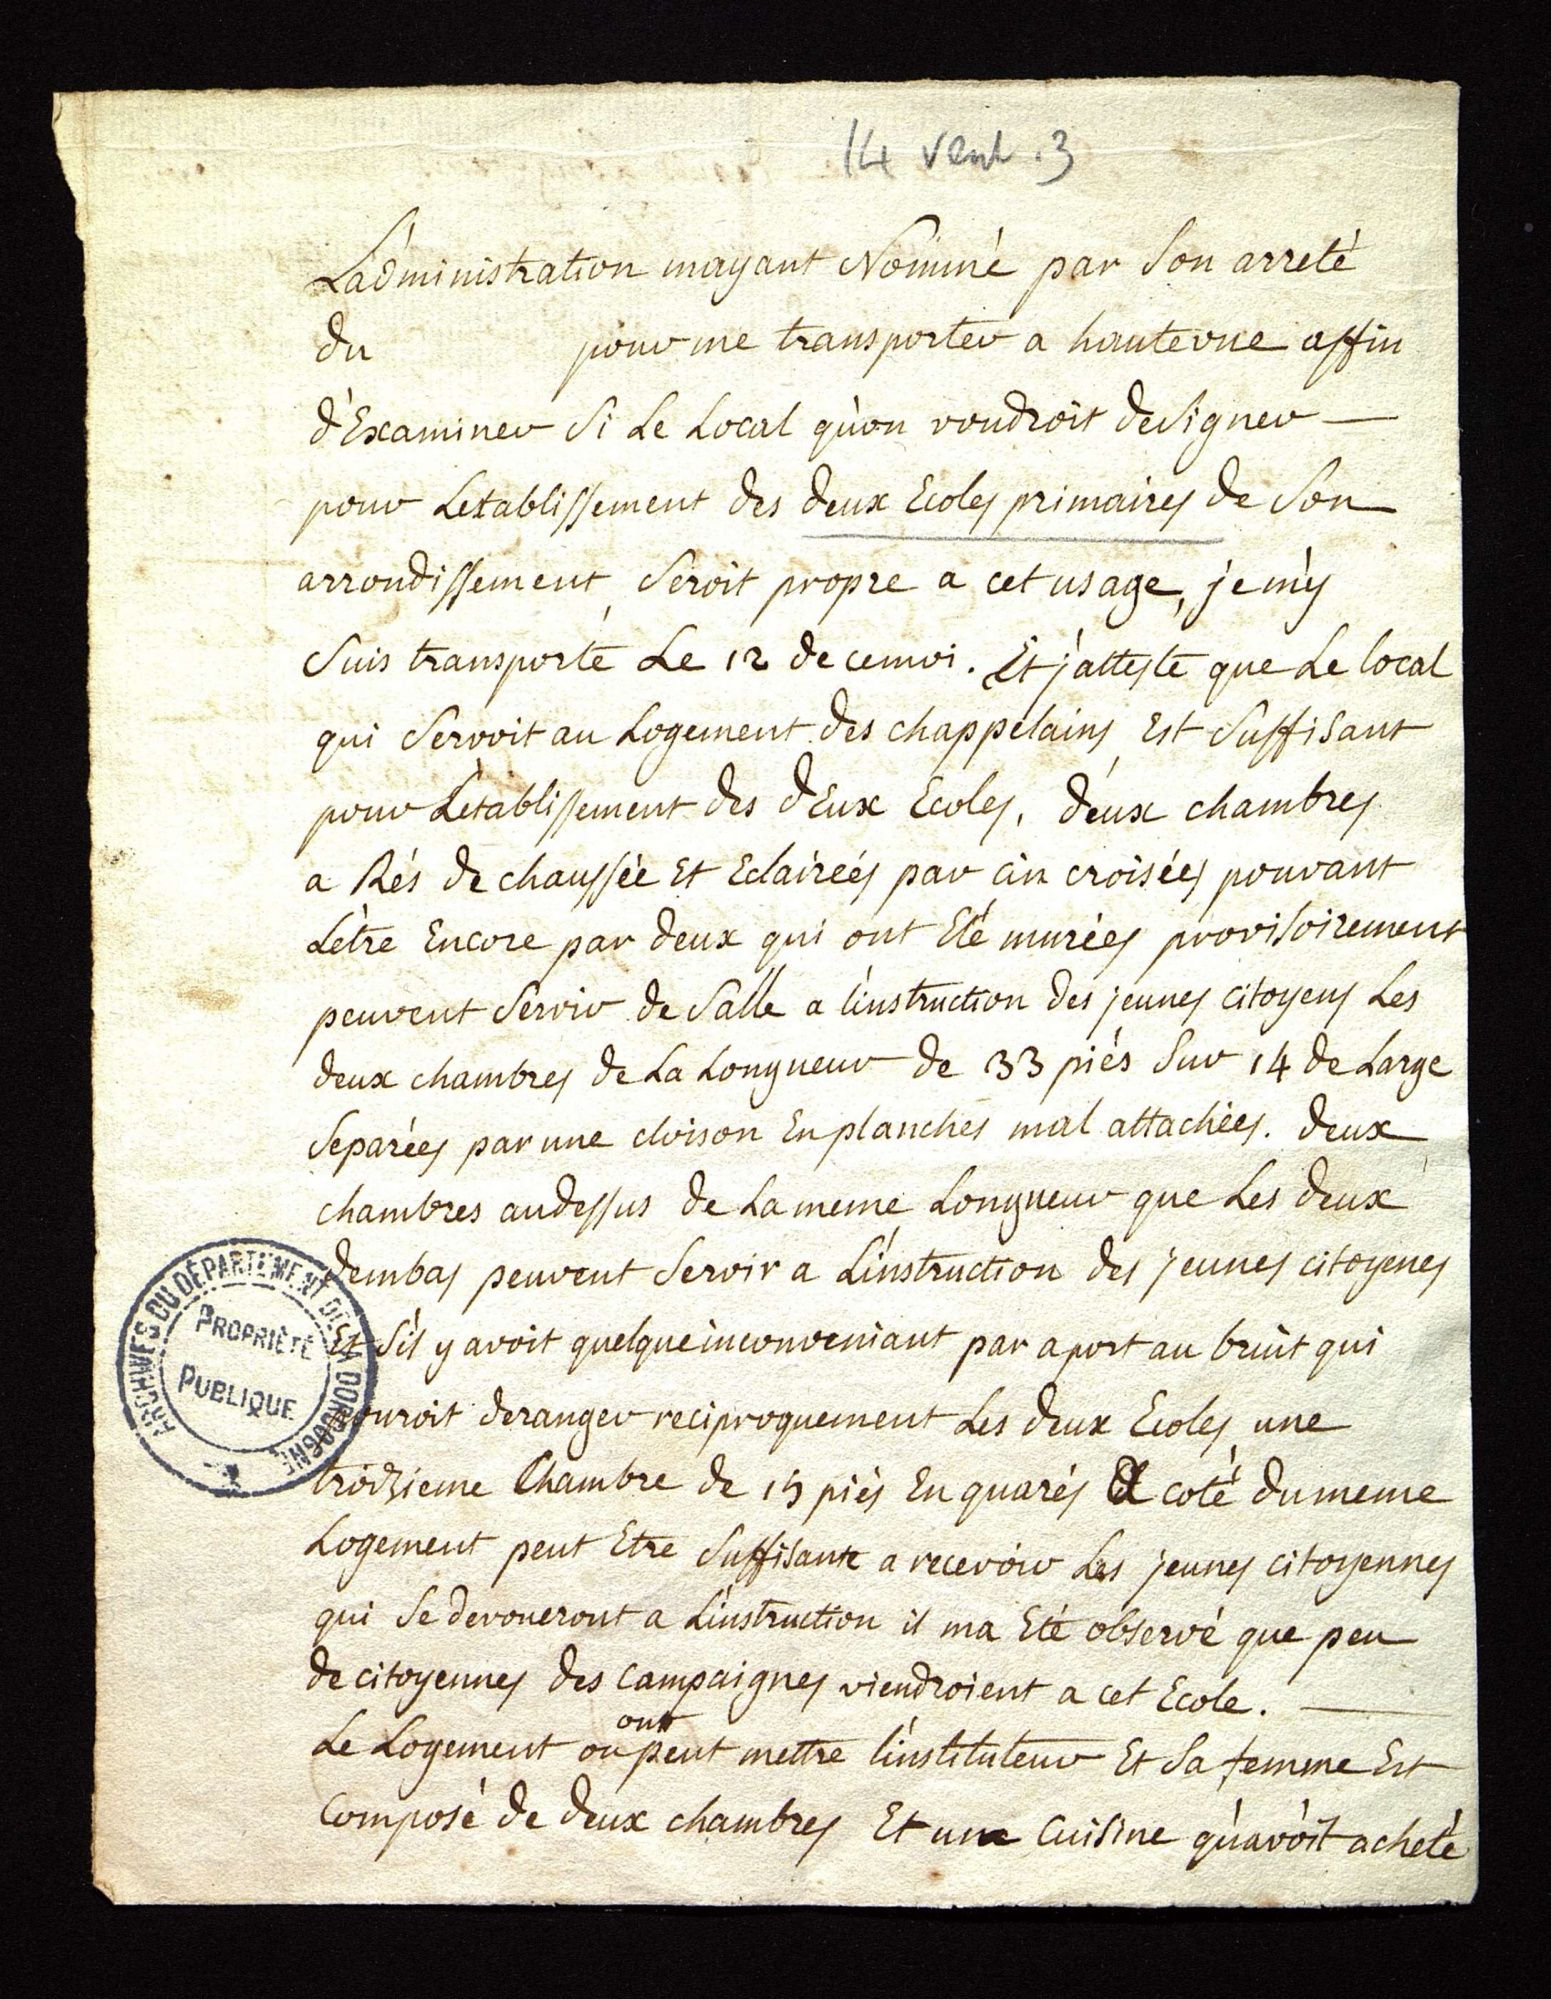 14 vent. 3
L'administration mayant Nommé par Son arreté
du pour me transporter a hautevue affin
d'Examiner Si Le Local qu'on voudroit deSigner —
pour Letablissement des deux Ecoles primaires de Son
arrondissement, Seroit propre a cet usage, je m'y
Suis transporté Le 12 de cemoi. Et j'atteste que Le local
qui Servoit au Logement des chappelains Est Suffisant
pour L'etablissement des dEux Ecoles, deux chambres
a Rés de chaussée Et Eclairéés par cin croisées pouvant
L'etre Encore par deux qui ont Eté murées provisoirement
peuvent Servir de Salle a l'instruction des jeunes citoyens Les
deux chambres de La Longueur de 33 piés Sur 14 de Large
Separées par une cloison En planches mal attachées. deux
chambres audessus de La meme Longueur que Les deux
dembas peuvent Servir a L'instruction des jeunes citoyenes
Et S'il y avoit quelque inconveniant par aport au bruit qui
pouroit deranger reciproquement Les deux Ecoles une
troizieme Chambre de 15 piés En quarés a coté du meme
Logement peut Etre Suffisante a recevoir Les jeunes citoyennes
qui Se devoueront a L'instruction il ma Eté observé que peu
de citoyennes des Campaignes viendroient a cet Ecole. —
ont
Le Logement ou peut mettre l'instituteur Et Sa femme Est
Composé de deux chambres Et une Cuisine qu'avoit acheté
ARCHIVES DU DÉPARTEMENT DE LA DORDOGNE
PROPRIÉTÉ
PUBLIQUE